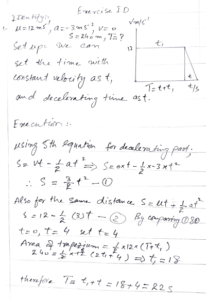 Exercise 1D
Identify:-
u=12ms⁻¹, a=-3ms⁻², v=0
S=240m, T=?
Set up: we can
set the time with
constant velocity as t₁
and decelerating time as t.
v m/s
12
t₁
t
t/s
T = t₁+t
Execution:-
using 5th equation for decelerating part,
S = vt - ½at² ⇒ S = 0×t - ½×-3×t²
∴ S = 3/2 t² —①
Also for the same distance S = ut + ½at²
S = 12 - ½(3)t —② By comparing ①&②
t=0, t=4 set t=4
Area of trapezium = ½×12×(T+t₁)
240 = ½×12 (2t₁+4) ⇒ t₁=18
therefore T = t₁+t = 18+4 = 22s